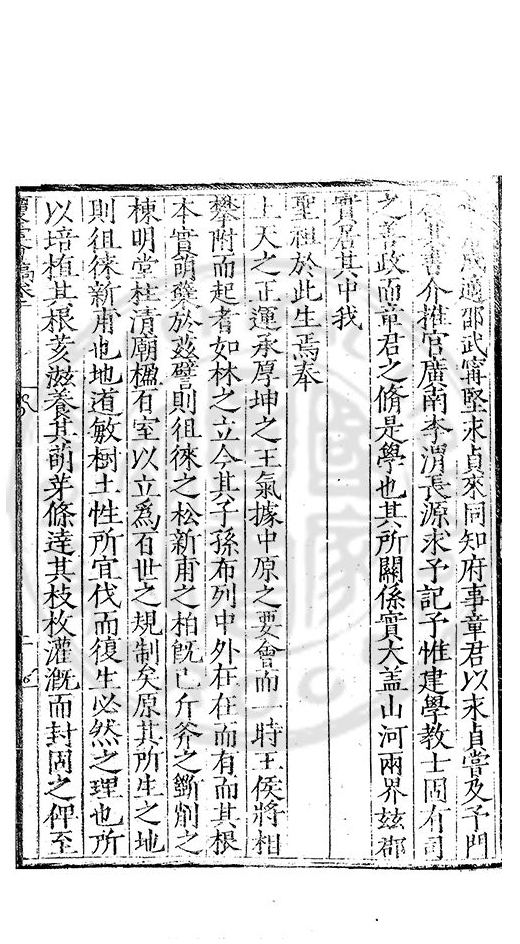 適邵武甯堅永貞來同知府事章君以永貞嘗及予門
書介推官廣南李渭長源求予記予惟建學教士固有司
之善政而章君之脩是學也其所關係實大盖山河兩界玆郡
實居其中我
聖祖於此生焉奉
上天之正運承厚坤之王氣據中原之要會而一時王侯將相
攀附而起者如林之立今其子孫布列中外在在而有而其根
本實萌蘖於茲譬則徂徠之松新甫之柏旣已斤斧之斵削之
棟明堂柱清廟楹石室以立爲百世之規制矣原其所生之地
則徂徠新甫也地道敏樹土性所宜伐而復生必然之理也所
以培植其根荄滋養其萌芽條達其枝枚灌漑而封固之俾至
稿卷